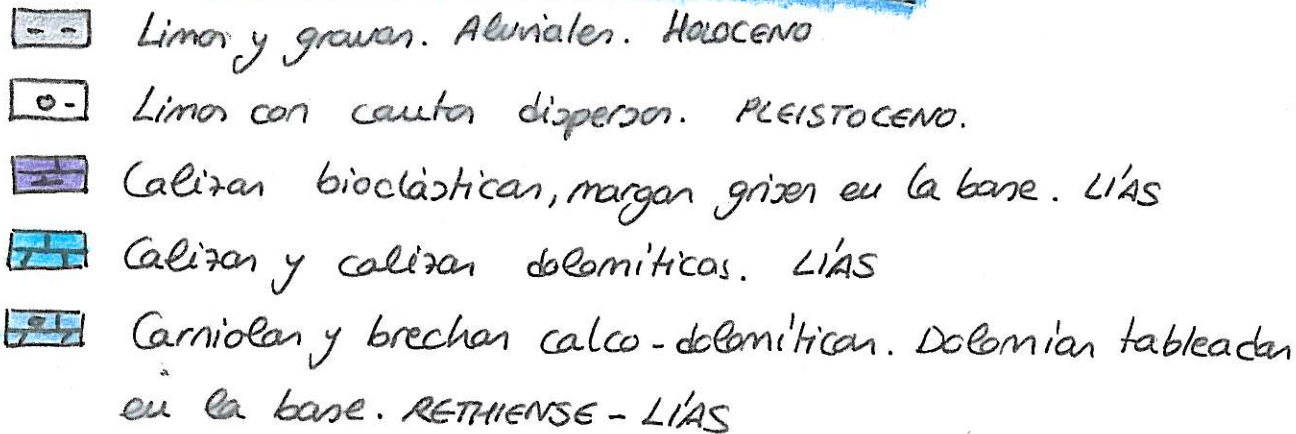 Limos y gravas. Aluviales. HOLOCENO
Limos con cantos dispersos. PLEISTOCENO.
Calizas bioclásticas, margas grises en la base. LÍAS
Calizas y calizas dolomíticas. LÍAS
Carniolas y brechas calco-dolomíticas. Dolomías tableadas
en la base. RETHIENSE - LÍAS